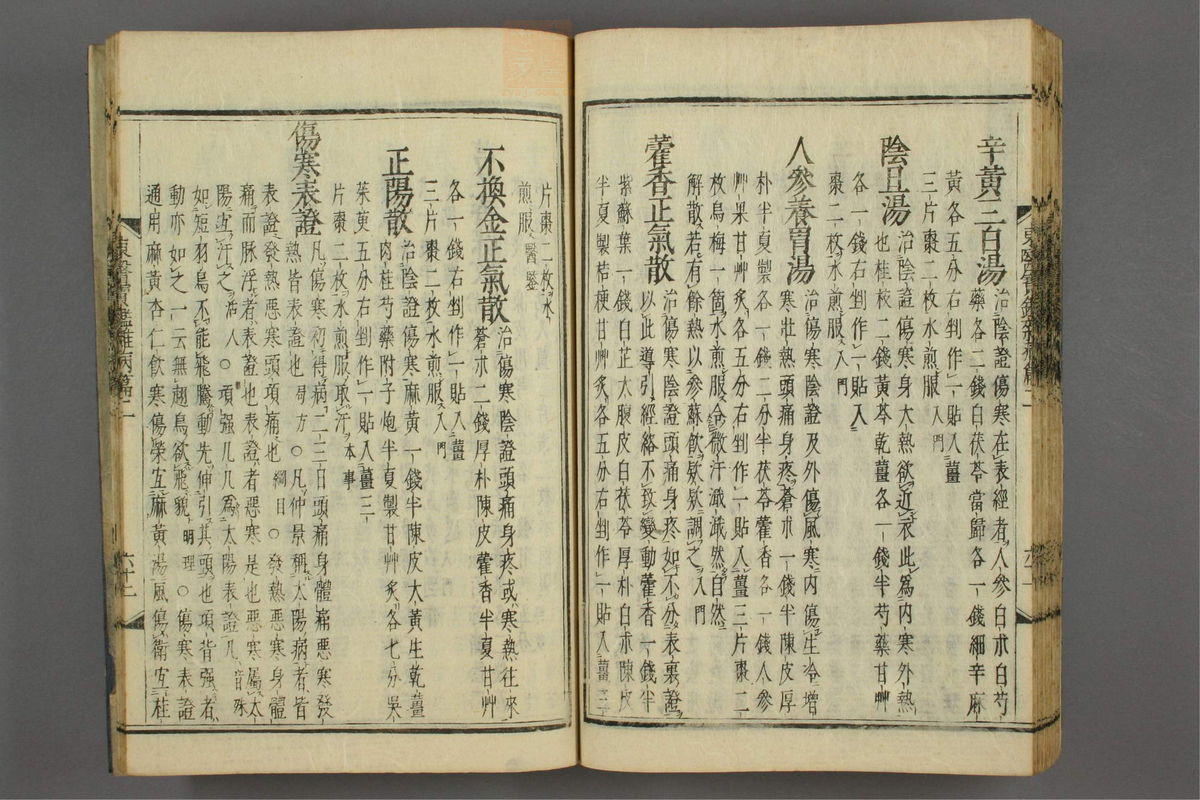 辛黃三白湯 治陰證傷寒在表經者人參白朮白芍
藥各二錢白茯苓當歸各一錢細辛麻
黃各五分右剉作一貼入薑
三片棗二枚水煎服入門
陰旦湯 治陰證傷寒身大熱欲近衣此爲内寒外熱
也桂枝二錢黃芩乾薑各一錢半芍藥甘艸
各一錢右剉作一貼入
棗二枚水煎服入門
人參養胃湯 治傷寒陰證及外傷風寒内傷生冷增
寒壯熱頭痛身疼蒼朮一錢半陳皮厚
朴半夏製各一錢二分半茯苓藿香各一錢人參
艸果甘艸炙各五分右剉作一貼入薑三片棗二
枚烏梅一箇水煎服令微汗濈濈然自然
解散若有餘熱以參蘇飮欵欵調之入門
藿香正氣散 治傷寒陰證頭痛身疼如不分表裏證
以此導引經絡不致變動藿香一錢半
紫蘇葉一錢白芷大腹皮白茯苓厚朴白朮陳皮
半夏製桔梗甘艸炙各五分右剉作一貼入薑三
片棗二枚水
煎服醫鑒
不換金正氣散 治傷寒陰證頭痛身疼或寒熱往來
蒼朮二錢厚朴陳皮藿香半夏甘艸
各一錢右剉作一貼入薑
三片棗二枚水煎服入門
正陽散 治陰證傷寒麻黃一錢半陳皮大黃生乾薑
肉桂芍藥附子炮半夏製甘艸炙各七分吳
茱萸五分右剉作一貼入薑三
片棗二枚水煎服取汗本事
傷寒表證 凡傷寒初得病二三日頭痛身體痛惡寒發
熱皆表證也局方○凡仲景稱太陽病者皆
表證發熱惡寒頭項痛也綱目○發熱惡寒身體
痛而脉浮者表證也表證者惡寒是也惡寒屬太
陽宜汗之活人○項强几几爲太陽表證几音殊
如短羽鳥不能飛騰動先伸引其頭也項背强者
動亦如之一云無翅鳥欲飛貌明理○傷寒表證
通用麻黃杏仁飮寒傷榮宜麻黃湯風傷衛宜桂
東醫寶鑑雜病篇二
六十二